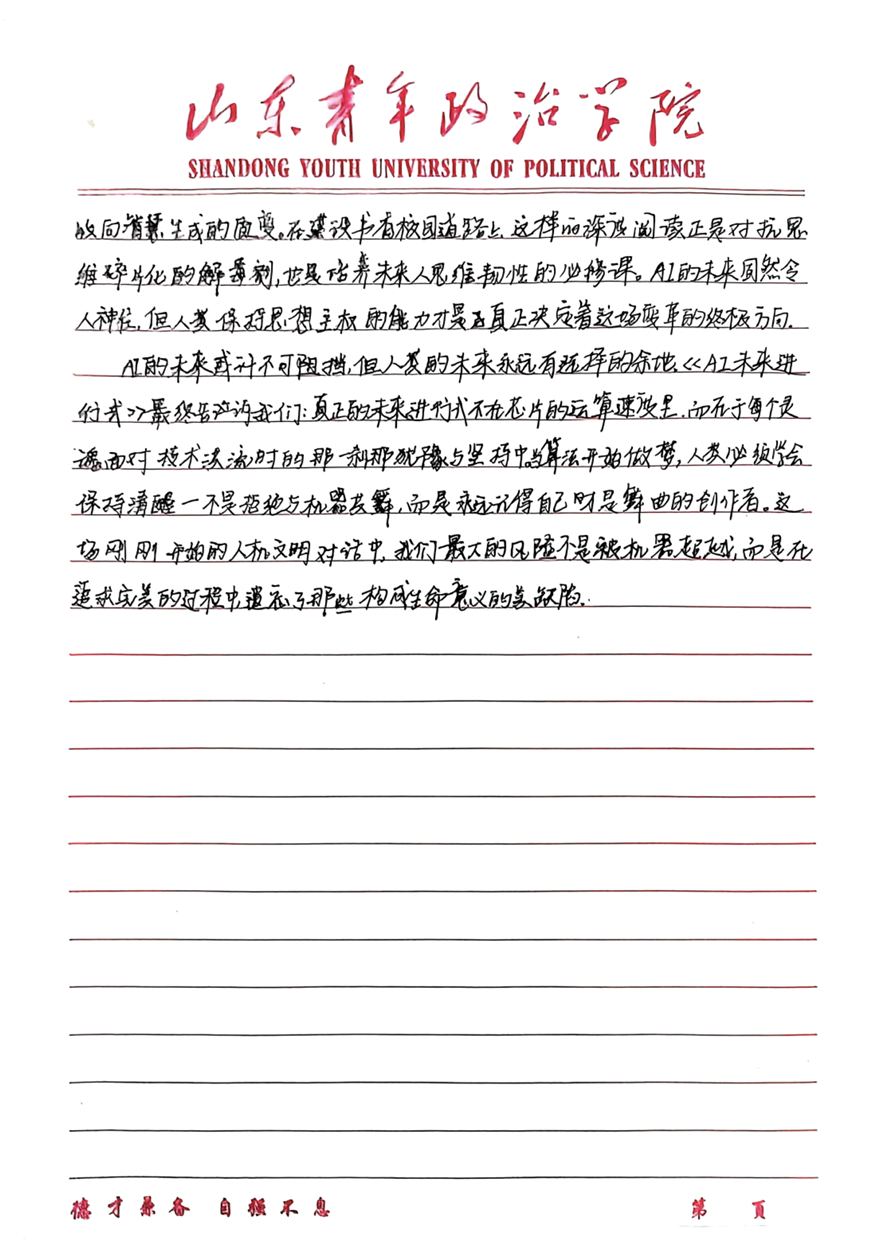 山东青年政治学院
SHANDONG YOUTH UNIVERSITY OF POLITICAL SCIENCE
收向智慧生成的质变。在建设书香校园道路上,这样的深度阅读正是对抗思
维碎片化的解毒剂,也是培养未来人思维韧性的必修课。AI的未来固然令
人神往,但人类保持思想主权的能力才是真正决定着这场变革的终极方向.
AI的未来或许不可阻挡,但人类的未来永远有选择的余地,《AI未来进
行式》最终告诉我们:真正的未来进行式不在芯片的运算速度里,而在于每个灵
魂面对技术洪流时的那一刹那犹豫与坚持中,当算法开始做梦,人类必须学会
保持清醒一不是拒绝与机器共舞,而是永远记得自己才是舞曲的创作者。这
场刚刚开始的人机文明对话中,我们最大的风险不是被机器超越,而是在
追求完美的过程中遗忘了那些构成生命意义的美缺陷.
德才兼备 自强不息
第 页